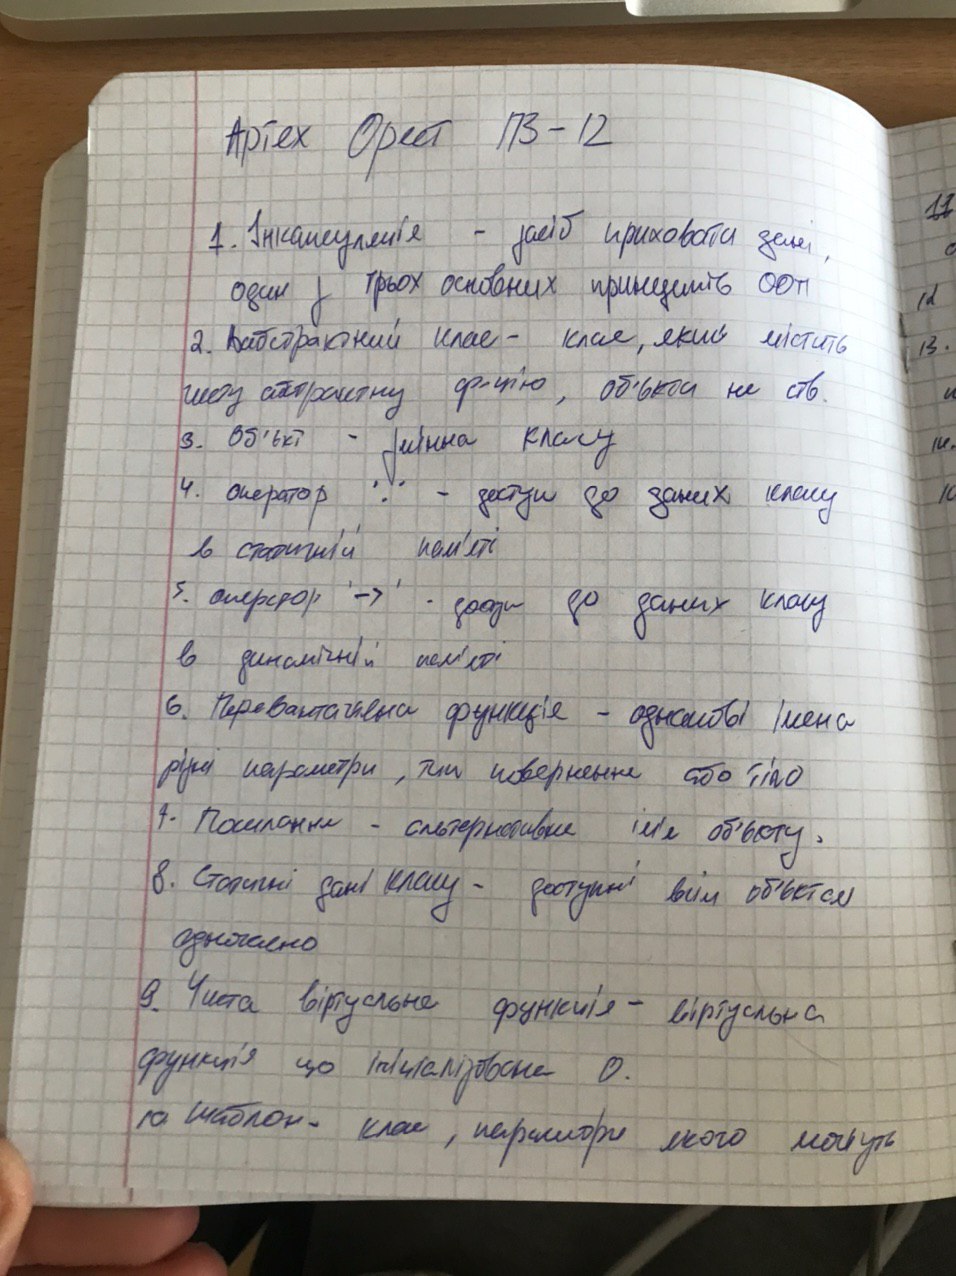 Артех Орест ПЗ-12
1. Інкапсуляція - засіб приховати дані,
один з трьох основних принципів ООП
2. Абстрактний клас - клас, який містить
чисту абстрактну ф-цію, об'єкти не ств.
3. Об'єкт - змінна класу
4. оператор '.' - доступ до даних класу
в статичній пам'яті
5. оператор '->' - доступ до даних класу
в динамічній пам'яті
6. Перевантажена функція - однакові імена
різні параметри, тип повернення або тіло
7. Посилання - альтернативне ім'я об'єкту.
8. Статичні дані класу - доступні всім об'єктам
одночасно
9. Чиста віртуальна функція - віртуальна
функція що ініціалізована 0.
10 Шаблон - клас, параметри якого можуть
11
12
13.
14.